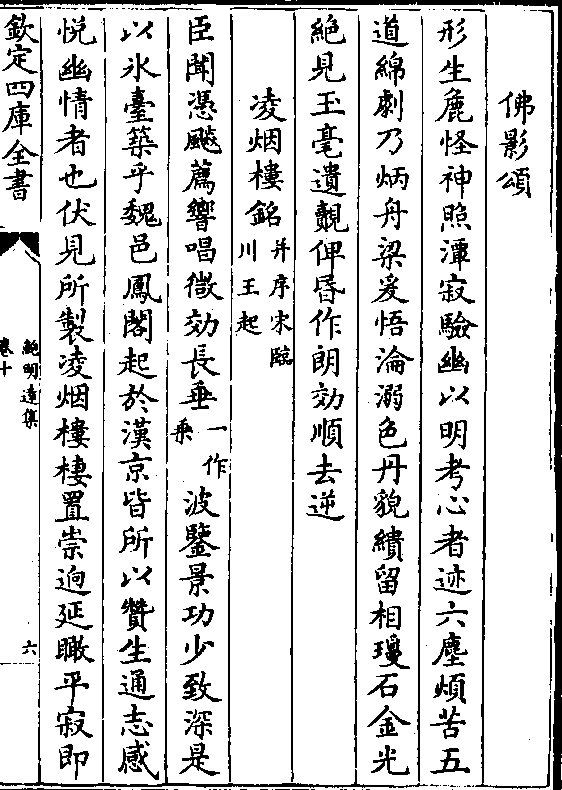 佛影頌
形生麁怪神照潭寂驗幽以明考心者迹六塵煩苦五
道綿劇乃炳舟梁爰悟淪溺色丹貌繢留相瓊石金光
絶見玉毫遺覿俾昏作朗効順去逆
凌烟樓銘 并序宋臨川王起
臣聞憑飈薦響唱微効長垂 一作乗 波鑒景功少致深是
以氷臺築乎魏邑鳳閣起於漢京皆所以贊生通志感
悦幽情者也伏見所製凌烟樓棲置崇迥延瞰平寂即
欽定四庫全書
鮑明逺集
卷十
六